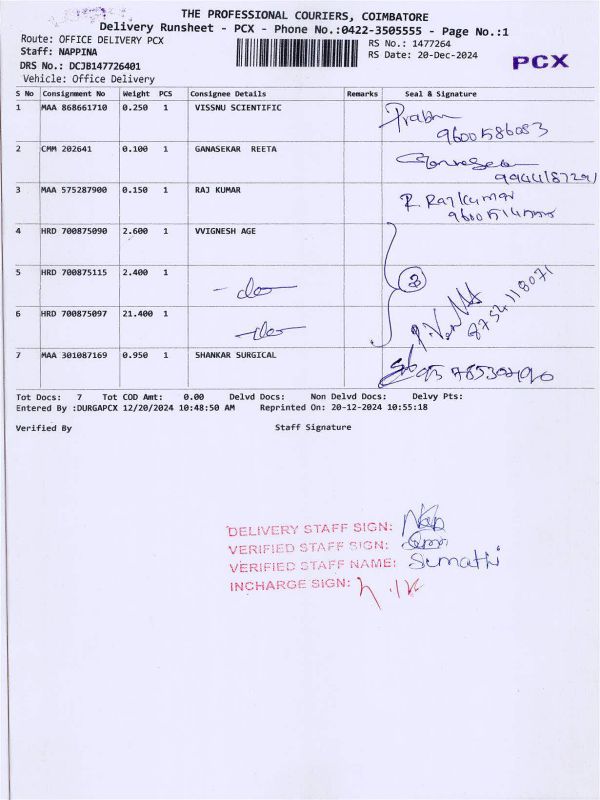 THE PROFESSIONAL COURIERS, COIMBATORE
Delivery Runsheet - PCX - Phone No.:0422-3505555 - Page No.:1
Route: OFFICE DELIVERY PCX
RS No.: 1477264
Staff: NAPPINA
RS Date: 20-Dec-2024
PCX
DRS No.: DCJB147726401
Vehicle: Office Delivery
S No Consignment No Weight PCS Consignee Details Remarks Seal & Signature
1 MAA 868661710 0.250 1 VISSNU SCIENTIFIC Prabu
9600586083
2 CMM 202641 0.100 1 GANASEKAR REETA
9944187291
3 MAA 575287900 0.150 1 RAJ KUMAR R. Raj Kumar
4 HRD 700875090 2.600 1 VVIGNESH AGE
5 HRD 700875115 2.400 1 -do- 3
8754118071
6 HRD 700875097 21.400 1 -do-
7 MAA 301087169 0.950 1 SHANKAR SURGICAL
Tot Docs: 7 Tot COD Amt: 0.00 Delvd Docs: Non Delvd Docs: Delvy Pts:
Entered By :DURGAPCX 12/20/2024 10:48:50 AM Reprinted On: 20-12-2024 10:55:18
Verified By Staff Signature
DELIVERY STAFF SIGN: Nap
VERIFIED STAFF SIGN:
VERIFIED STAFF NAME: Sumathi
INCHARGE SIGN: